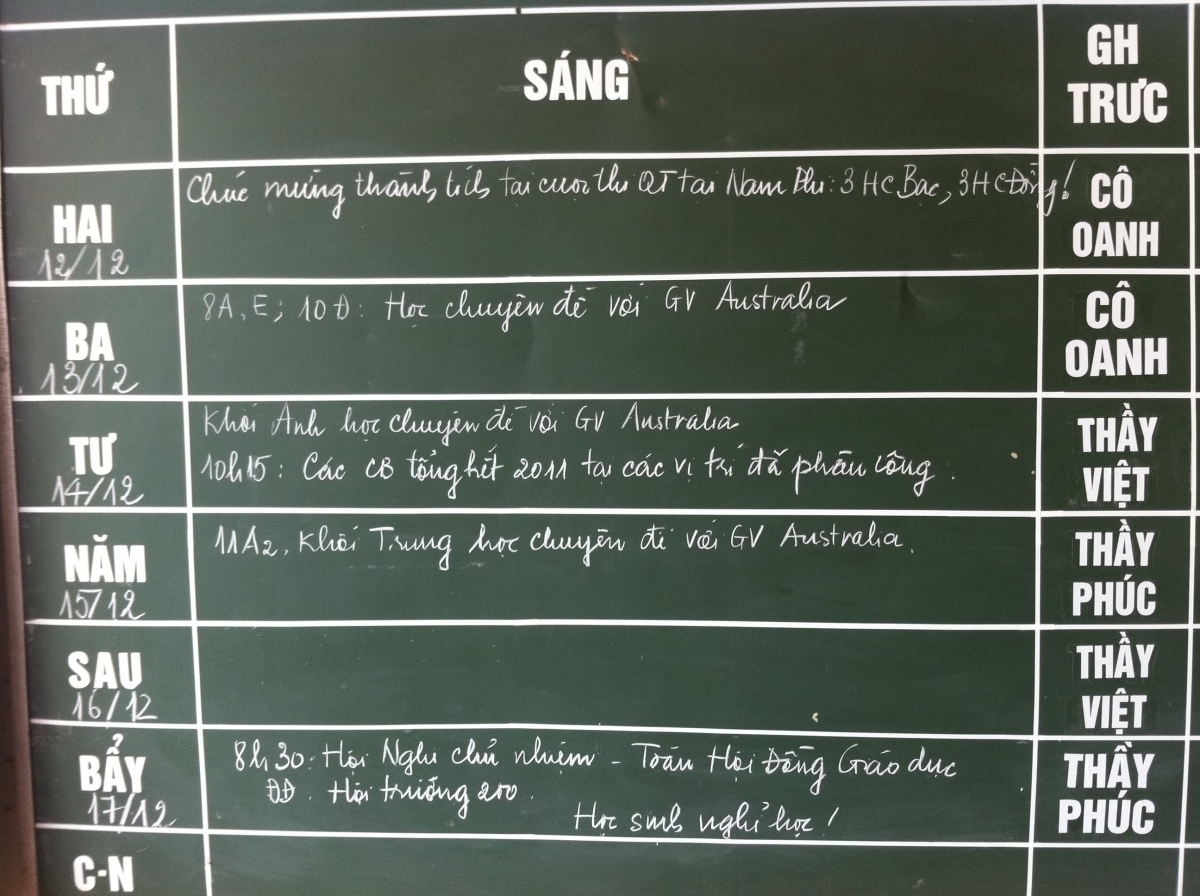 THỨ
SÁNG
GH
TRƯC
HAI
12/12
Chúc mừng thành tích tại cuộc thi QT tại Nam Phi: 3 HC Bạc, 3 HC Đồng!
CÔ
OANH
BA
13/12
8A, E; 10Đ: Học chuyên đề với GV Australia
CÔ
OANH
TƯ
14/12
Khối Anh học chuyên đề với GV Australia
10h15: Các CB tổng kết 2011 tại các vị trí đã phân công.
THẦY
VIỆT
NĂM
15/12
11A2, Khối Trung học chuyên đề với GV Australia.
THẦY
PHÚC
SAU
16/12
THẦY
VIỆT
BẨY
17/12
8h30: Hội Nghị chủ nhiệm - Toàn Hội Đồng Giáo dục
ĐĐ: Hội trường 200.
Học sinh nghỉ học!
THẦY
PHÚC
C-N